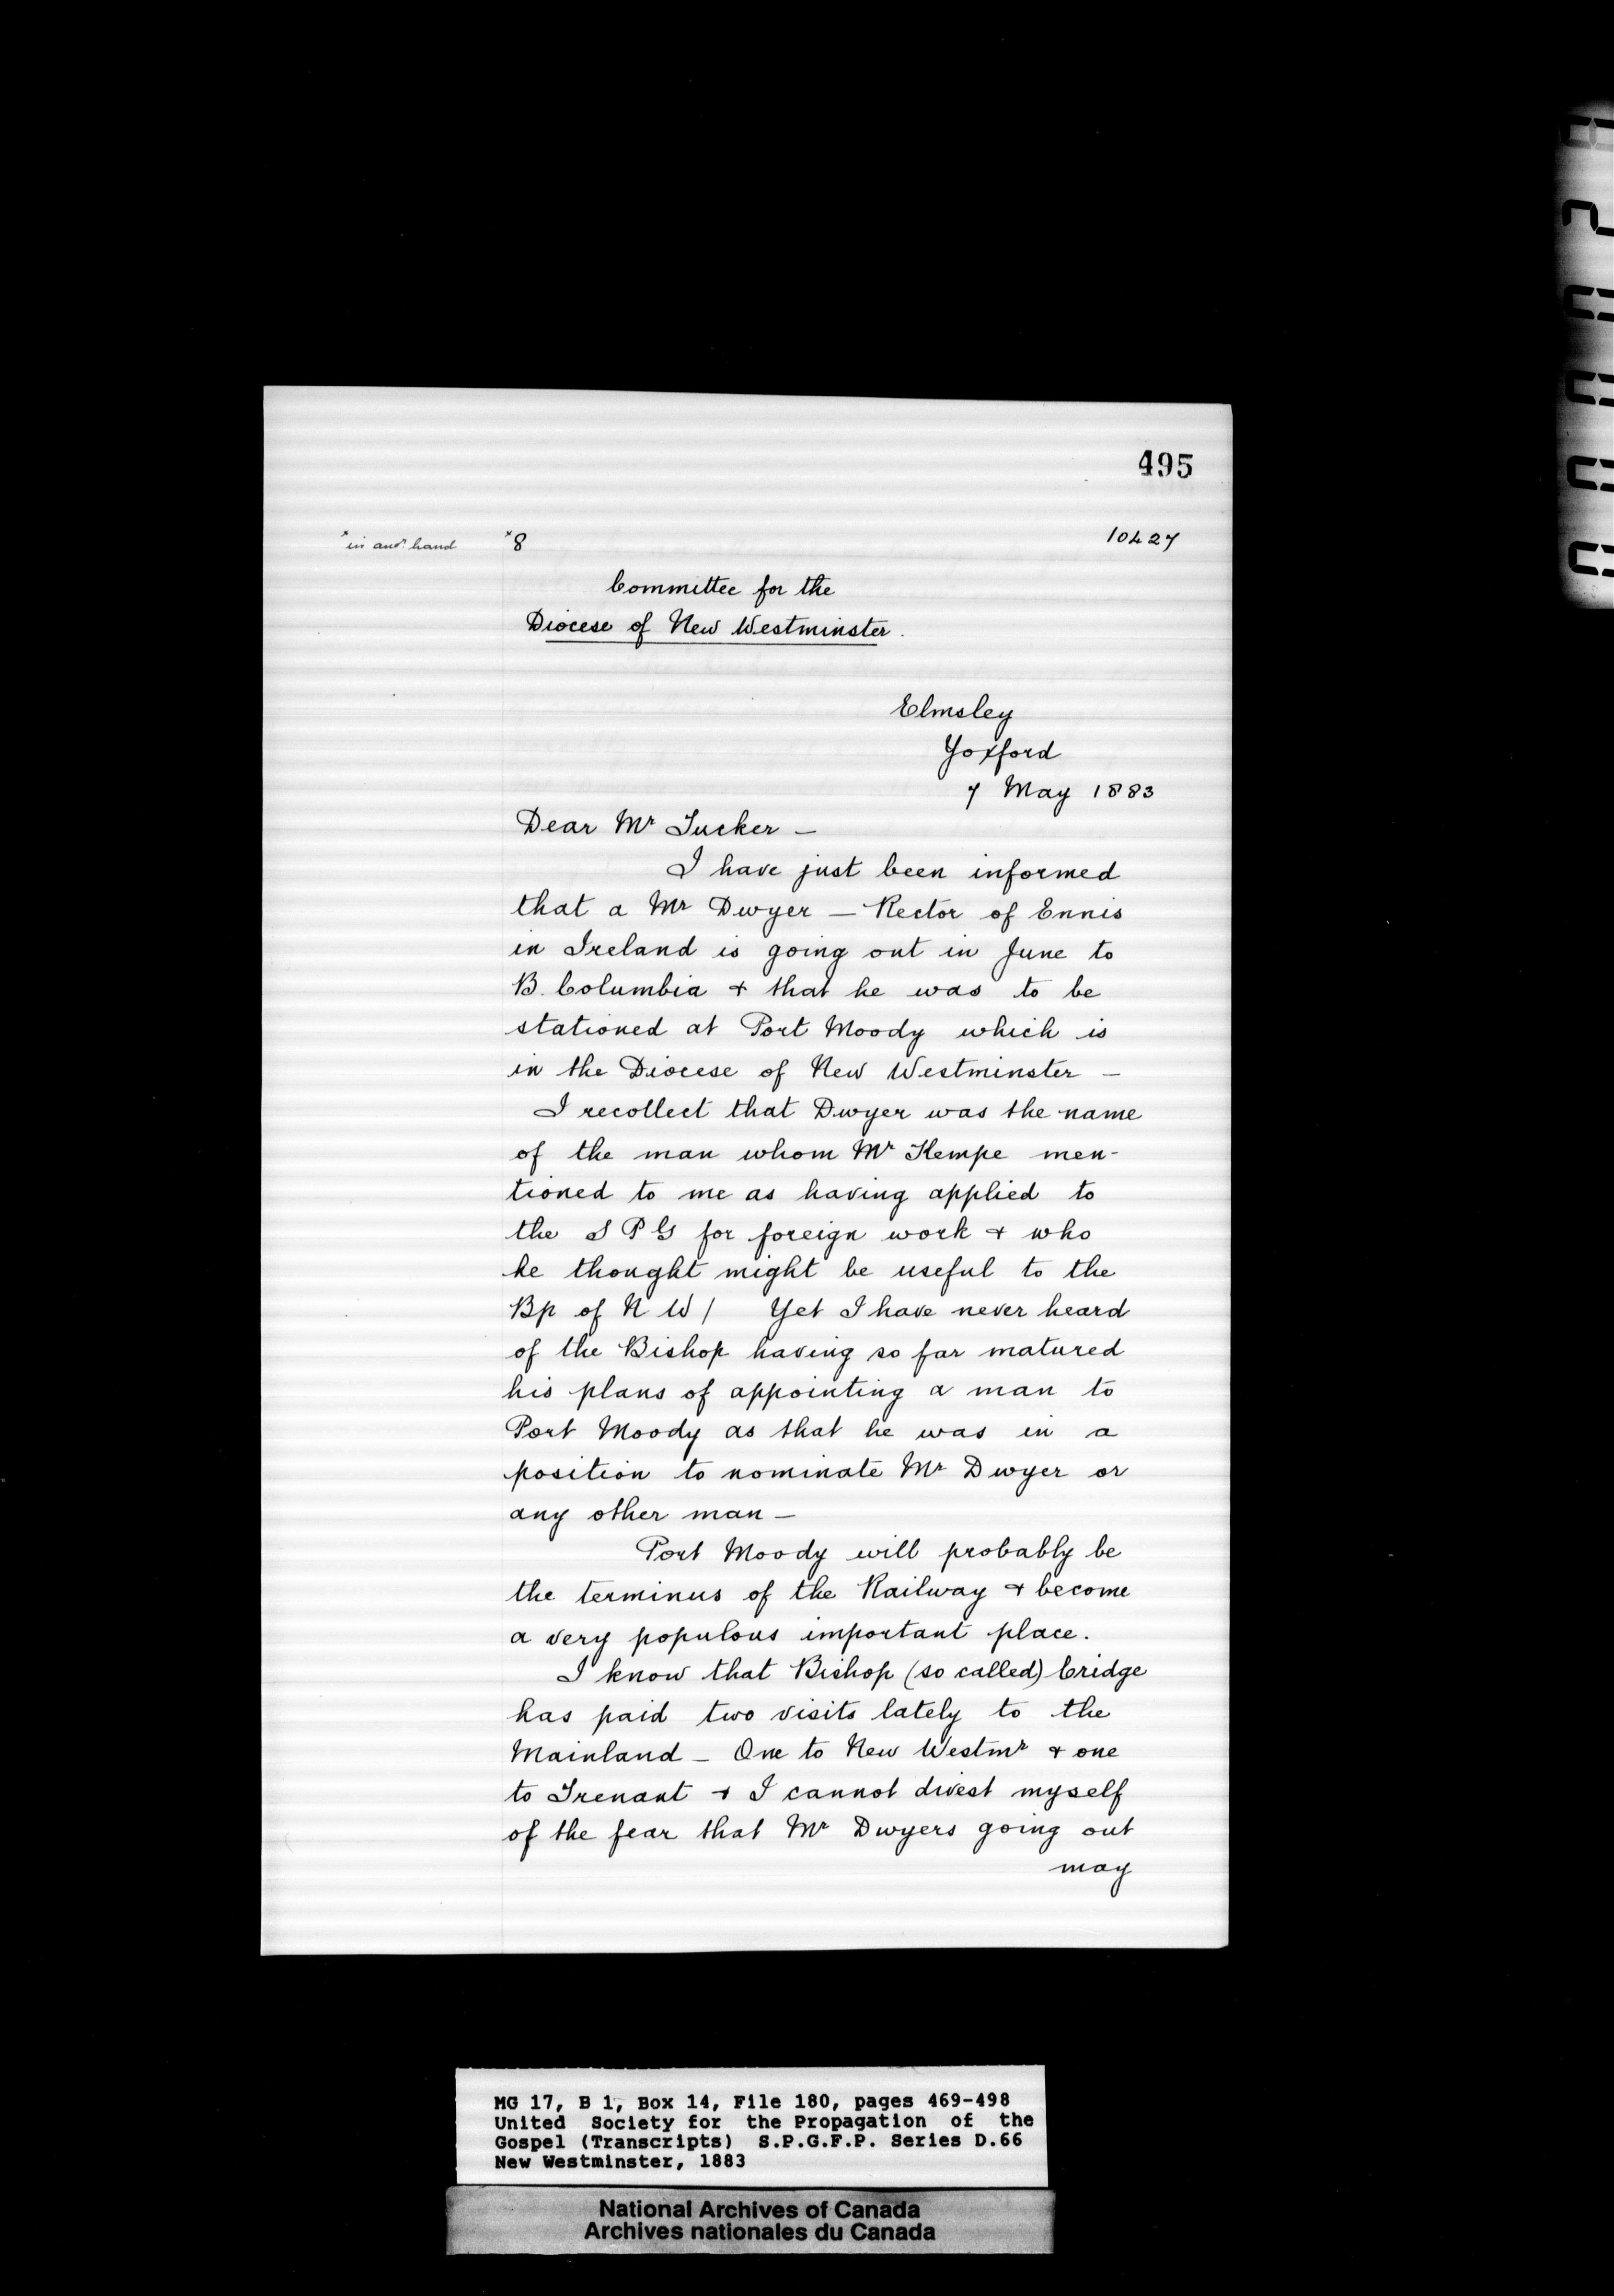 495
*in anor hand
*8
10427
Committee for the
Diocese of New Westminster.
Elmsley
Yoxford
7 May 1883
Dear Mr Tucker —
I have just been informed
that a Mr Dwyer — Rector of Ennis
in Ireland is going out in June to
B. Columbia & that he was to be
stationed at Port Moody which is
in the Diocese of New Westminster —
I recollect that Dwyer was the name
of the man whom Mr Kempe men-
tioned to me as having applied to
the S P G for foreign work & who
he thought might be useful to the
Bp of N W / Yet I have never heard
of the Bishop having so far matured
his plans of appointing a man to
Port Moody as that he was in a
position to nominate Mr Dwyer or
any other man —
Port Moody will probably be
the terminus of the Railway & become
a very populous important place.
I know that Bishop (so called) Cridge
has paid two visits lately to the
Mainland — One to New Westmr & one
to Trenant & I cannot divest myself
of the fear that Mr Dwyers going out
may
MG 17, B 1, Box 14, File 180, pages 469-498
United Society for the Propagation of the
Gospel (Transcripts) S.P.G.F.P. Series D.66
New Westminster, 1883
National Archives of Canada
Archives nationales du Canada